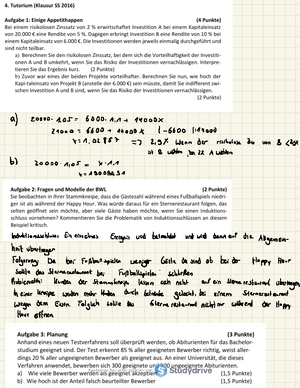 4. Tutorium (Klausur SS 2016)
Aufgabe 1: Einige Appetithappen (4 Punkte)
Bei einem risikolosen Zinssatz von 2 % erwirtschaftet Investition A bei einem Kapitaleinsatz
von 20.000 € eine Rendite von 5 %. Dagegen erbringt Investition B eine Rendite von 10 % bei
einem Kapitaleinsatz von 6.000 €. Die Investitionen werden jeweils einmalig durchgeführt und
sind nicht teilbar.
a) Berechnen Sie den risikolosen Zinssatz, bei dem sich die Vorteilhaftigkeit der Investiti-
onen A und B umkehrt, wenn Sie das Risiko der Investitionen vernachlässigen. Interpre-
tieren Sie das Ergebnis kurz. (2 Punkte)
b) Zuvor war eines der beiden Projekte vorteilhafter. Berechnen Sie nun, wie hoch der
Kapitaleinsatz von Projekt B (anstelle der 6.000 €) sein müsste, damit Sie indifferent zwi-
schen Investition A und B sind, wenn Sie das Risiko der Investitionen vernachlässigen.
(2 Punkte)
a) 20000 · 1,05 = 6000 · 1,1 + 14000x
21000 = 6600 + 14000x |-6600 |:14000
x = 1,02857 => 2,9%
b) 20000 · 1,05 = x · 1,1
Aufgabe 2: Fragen und Modelle der BWL (2 Punkte)
Sie beobachten in Ihrer Stammkneipe, dass die Gästezahl während eines Fußballspiels niedri-
ger ist als während der Happy Hour. Was würde daraus für ein Sternerestaurant folgen, das
selten geöffnet sein möchte, aber viele Gäste haben möchte, wenn Sie einen Induktions-
schluss vornehmen? Kommentieren Sie die Problematik von Induktionsschlüssen an diesem
Beispiel kritisch.
Induktionsschluss: Ein einzelnes Ereignis wird betrachtet und wird dann auf die Allgemein-
heit übertragen
Folgerung: Da bei Fußballspielen weniger Gäste da sind als bei der Happy Hour
sollte das Sternerestaurant bei Fußballspielen schließen
Problematik: Kunden der Stammkneipe lassen sich nicht auf ein Sternerestaurant übertragen
Hour öffnen
Aufgabe 3: Planung (3 Punkte)
Anhand eines neuen Testverfahrens soll überprüft werden, ob Abiturienten für das Bachelor-
studium geeignet sind. Der Test erkennt 85 % aller geeigneten Bewerber richtig, weist aller-
dings 20 % aller ungeeigneten Bewerber als geeignet aus. An einer Universität, die dieses
Verfahren anwendet, bewerben sich 300 geeignete und 200 ungeeignete Abiturienten.
a) Wie viele Bewerber werden als geeignet akzeptiert? (1,5 Punkte)
b) Wie hoch ist der Anteil falsch beurteilter Bewerber (1,5 Punkte)
Studydrive